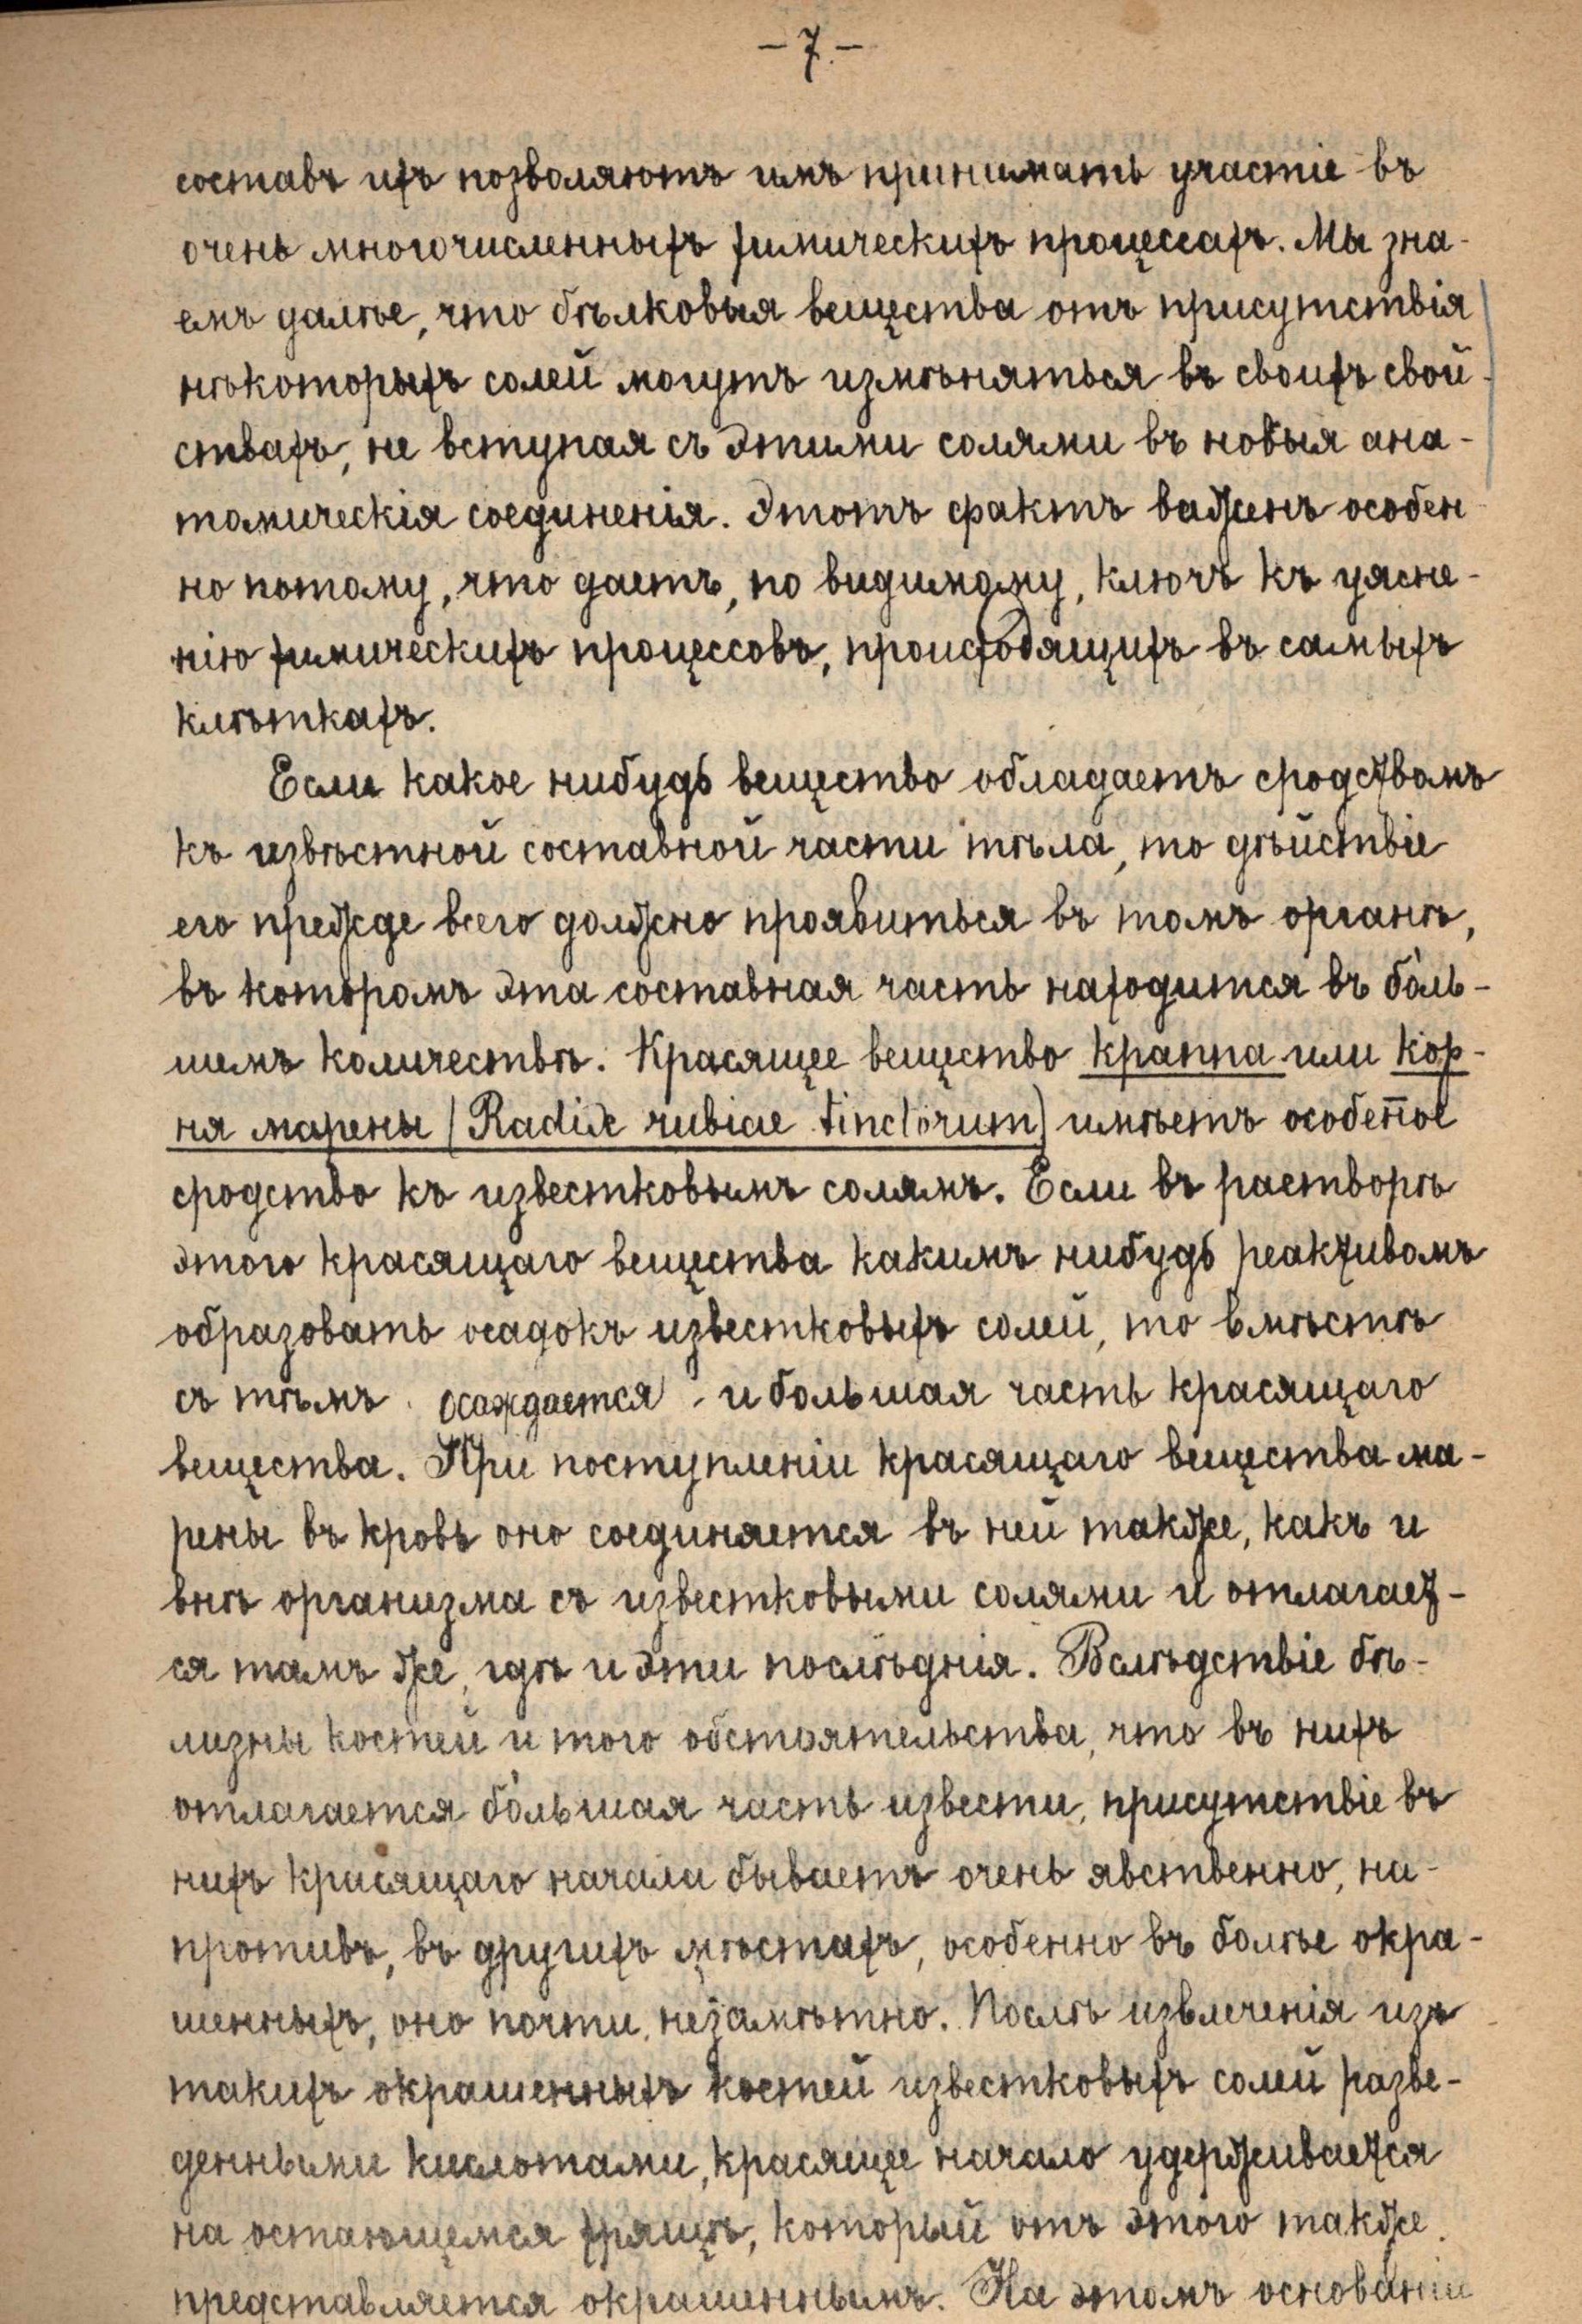 – 7. –
составъ ихъ позволяютъ имъ принимать участіе въ
очень многочисленныхъ химическихъ процессахъ. Мы зна-
емъ далѣе, что бѣлковыя вещества отъ присутствія
нѣкоторыхъ солей могутъ измѣняться въ своихъ свой-
ствахъ, не вступая съ этими солями въ новыя ана-
томическія соединенія. Этотъ фактъ важенъ особен-
но потому, что даетъ, по видимому, ключъ къ уясне-
нію химическихъ процессовъ, происходящихъ въ самыхъ
клѣткахъ.
Если какое нибудь вещество обладаетъ сродствомъ
къ извѣстной составной части тѣла, то дѣйствіе
его прежде всего должно проявиться въ томъ органѣ,
въ которомъ эта составная часть находится въ боль-
шемъ количествѣ. Красящее вещество краппа или кор-
ня марены (Radix rubiae tinctorum) имѣетъ особен̅ое
сродство къ известковымъ солямъ. Если въ растворѣ
этого красящаго вещества какимъ нибудь реактивомъ
образовать осадокъ известковыхъ солей, то вмѣстѣ
съ тѣмъ осаждается и большая часть красящаго
вещества. При поступленіи красящаго вещества ма-
рены въ кровь оно соединяется въ ней также, какъ и
внѣ организма съ известковыми солями и отлагает-
ся тамъ же, гдѣ и эти послѣднія. Вслѣдствіе бѣ-
лизны костей и того обстоятельства, что въ нихъ
отлагается бо́льшая часть извести, присутствіе въ
нихъ красящаго начала бываетъ очень явственно, на-
противъ, въ другихъ мѣстахъ, особенно въ болѣе окра-
шенныхъ, оно почти незамѣтно. Послѣ извлеченія изъ
такихъ окрашенныхъ костей известковыхъ солей разве-
денными кислотами, красящее начало удерживается
на остающемся хрящѣ, который отъ этого также
представляется окрашеннымъ. На этомъ основаніи